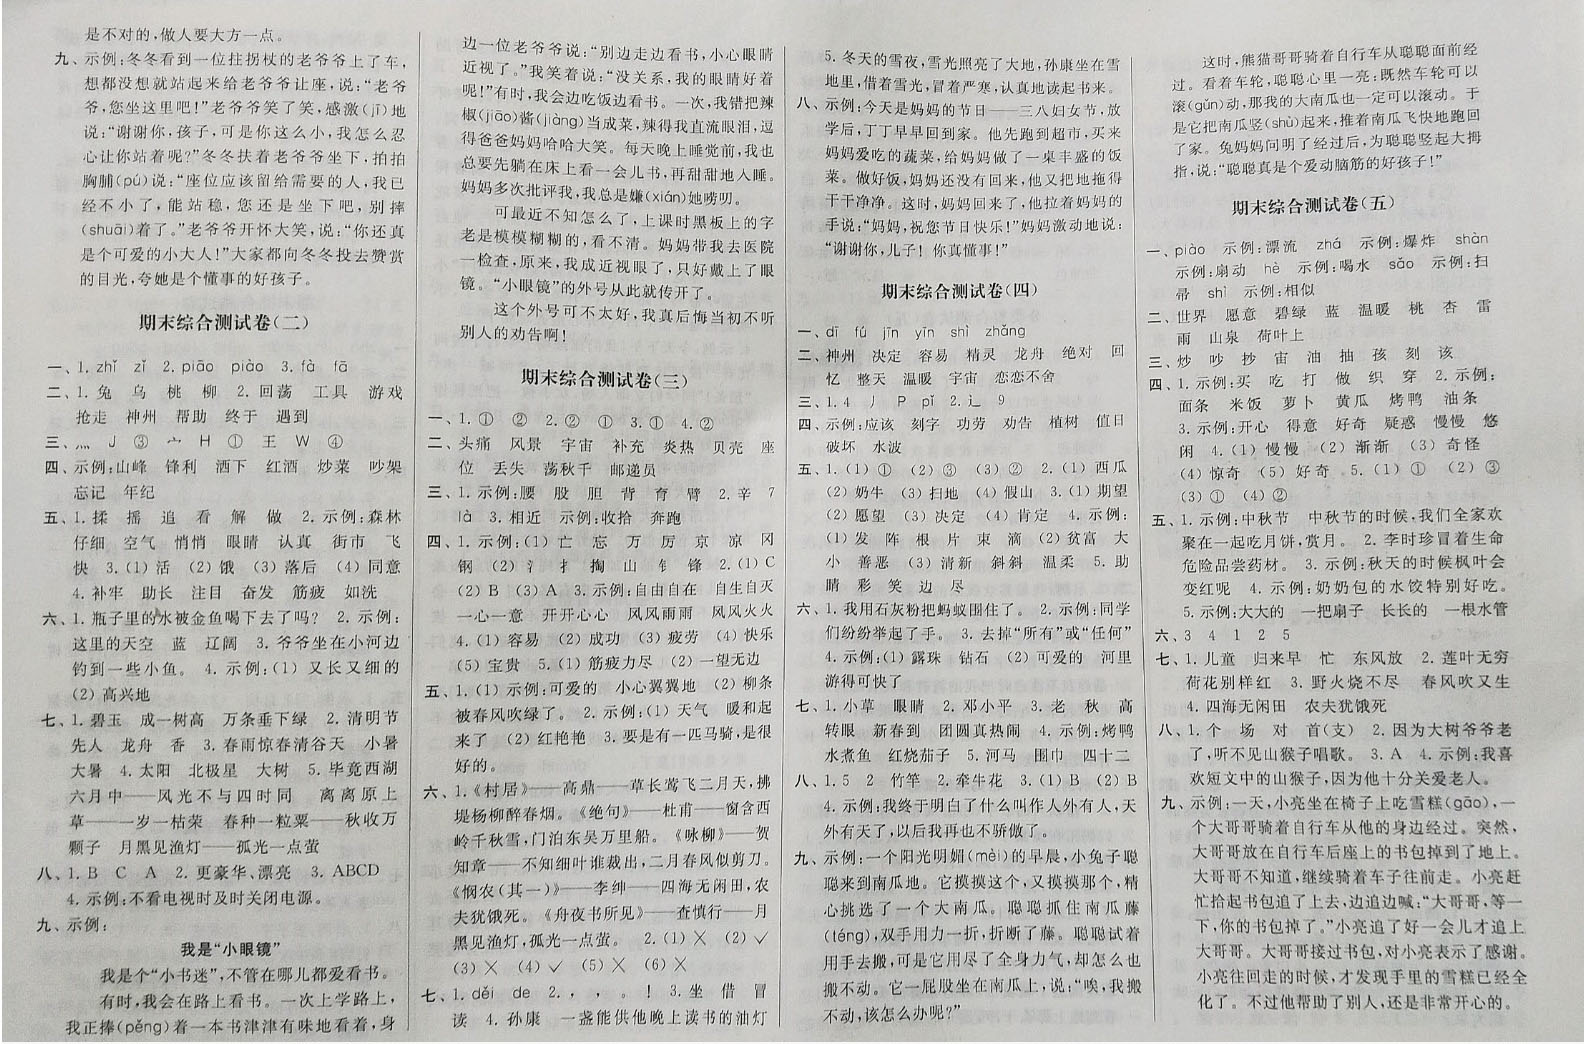 是不对的,做人要大方一点。
九、示例:冬冬看到一位拄拐杖的老爷爷上了车,
想都没想就站起来给老爷爷让座,说:“老爷
爷,您坐这里吧!”老爷爷笑了笑,感激(jī)地
说:“谢谢你,孩子,可是你这么小,我怎么忍
心让你站着呢?”冬冬扶着老爷爷坐下,拍拍
胸脯(pú)说:“座位应该留给需要的人,我已
经不小了,能站稳,您还是坐下吧,别摔
(shuāi)着了。”老爷爷开怀大笑,说:“你还真
是个可爱的小大人!”大家都向冬冬投去赞赏
的目光,夸她是个懂事的好孩子。
期末综合测试卷(二)
一、1. zhǐ zǐ 2. piāo piào 3. fà fā
二、1. 兔 乌 桃 柳 2. 回荡 工具 游戏
抢走 神州 帮助 终于 遇到
三、灬 J ③ 亠 H ① 王 W ④
四、示例:山峰 锋利 洒下 红酒 炒菜 吵架
忘记 年纪
五、1. 揉 摇 追 看 解 做 2. 示例:森林
仔细 空气 悄悄 眼睛 认真 街市 飞
快 3. (1) 活 (2) 饿 (3) 落后 (4) 同意
4. 补牢 助长 注目 奋发 筋疲 如洗
六、1. 瓶子里的水被金鱼喝下去了吗? 2. 示例:
这里的天空 蓝 辽阔 3. 爷爷坐在小河边
钓到一些小鱼。 4. 示例:(1) 又长又细的
(2) 高兴地
七、1. 碧玉 成一树高 万条垂下绿 2. 清明节
先人 龙舟 香 3. 春雨惊春清谷天 小暑
大暑 4. 太阳 北极星 大树 5. 毕竟西湖
六月中——风光不与四时同 离离原上
草——一岁一枯荣 春种一粒粟——秋收万
颗子 月黑见渔灯——孤光一点萤
八、1. B C A 2. 更豪华、漂亮 3. ABCD
4. 示例:不看电视时及时关闭电源。
九、示例:
我是“小眼镜”
我是个“小书迷”,不管在哪儿都爱看书。
有时,我会在路上看书。一次上学路上,
我正捧(pěng)着一本书津津有味地看着,身
边一位老爷爷说:“别边走边看书,小心眼睛
近视了。”我笑着说:“没关系,我的眼睛好着
呢!”有时,我会边吃饭边看书。一次,我错把辣
椒(jiāo)酱(jiàng)当成菜,辣得我直流眼泪,逗
得爸爸妈妈哈哈大笑。每天晚上睡觉前,我也
总要先躺在床上看一会儿书,再甜甜地入睡。
妈妈多次批评我,我总是嫌(xián)她唠叨。
可最近不知怎么了,上课时黑板上的字
老是模模糊糊的,看不清。妈妈带我去医院
一检查,原来,我成近视眼了,只好戴上了眼
镜。“小眼镜”的外号从此就传开了。
这个外号可不太好,我真后悔当初不听
别人的劝告啊!
期末综合测试卷(三)
一、1. ① ② 2. ② ① 3. ① 4. ②
二、头痛 风景 宇宙 补充 炎热 贝壳 座
位 丢失 荡秋千 邮递员
三、1. 示例:腰 股 胆 背 育 臂 2. 辛 7
là 3. 相近 示例:收拾 奔跑
四、1. 示例:(1) 亡 忘 万 厉 京 凉 冈
钢 (2) 氵 扌 掏 山 钅 锋 2. (1) C
(2) B (3) A 3. 示例:自由自在 自生自灭
一心一意 开开心心 风风雨雨 风风火火
4. (1) 容易 (2) 成功 (3) 疲劳 (4) 快乐
(5) 宝贵 5. (1) 筋疲力尽 (2) 一望无边
五、1. (1) 示例:可爱的 小心翼翼地 (2) 柳条
被春风吹绿了。 2. 示例:(1) 天气 暖和起
来了 (2) 红艳艳 3. 要是有一匹马骑,是很
好的。
六、1. 《村居》——高鼎——草长莺飞二月天,拂
堤杨柳醉春烟。《绝句》——杜甫——窗含西
岭千秋雪,门泊东吴万里船。《咏柳》——贺
知章——不知细叶谁裁出,二月春风似剪刀。
《悯农(其一)》——李绅——四海无闲田,农
夫犹饿死。《舟夜书所见》——查慎行——月
黑见渔灯,孤光一点萤。 2. (1) ✕ (2) ✓
(3) ✕ (4) ✓ (5) ✕ (6) ✕
七、1. děi de 2. , , 。 ! 3. 坐 借 冒
读 4. 孙康 一盏能供他晚上读书的油灯
5. 冬天的雪夜,雪光照亮了大地,孙康坐在雪
地里,借着雪光,冒着严寒,认真地读起书来。
八、示例:今天是妈妈的节日——三八妇女节,放
学后,丁丁早早回到家。他先跑到超市,买来
妈妈爱吃的蔬菜,给妈妈做了一桌丰盛的饭
菜。做好饭,妈妈还没有回来,他又把地拖得
干干净净。这时,妈妈回来了,他拉着妈妈的
手说:“妈妈,祝您节日快乐!”妈妈激动地说:
“谢谢你,儿子!你真懂事!”
期末综合测试卷(四)
一、dī fú jīn yīn shì zhǎng
二、神州 决定 容易 精灵 龙舟 绝对 回
忆 整天 温暖 宇宙 恋恋不舍
三、1. 4 丿 P pǐ 2. 辶 9
四、示例:应该 刻字 功劳 劝告 植树 值日
破坏 水波
五、1. (1) ① (2) ③ (3) ② 2. (1) 西瓜
(2) 奶牛 (3) 扫地 (4) 假山 3. (1) 期望
(2) 愿望 (3) 决定 (4) 肯定 4. 示例:
(1) 发 阵 根 片 束 滴 (2) 贫富 大
小 善恶 (3) 清新 斜斜 温柔 5. 助
睛 彩 笑 边 尽
六、1. 我用石灰粉把蚂蚁围住了。 2. 示例:同学
们纷纷举起了手。 3. 去掉“所有”或“任何”
4. 示例:(1) 露珠 钻石 (2) 可爱的 河里
游得可快了
七、1. 小草 眼睛 2. 邓小平 3. 老 秋 高
转眼 新春到 团圆真热闹 4. 示例:烤鸭
水煮鱼 红烧茄子 5. 河马 围巾 四十二
八、1. 5 2 竹竿 2. 牵牛花 3. (1) B (2) B
4. 示例:我终于明白了什么叫作人外有人,天
外有天了,以后我再也不骄傲了。
九、示例:一个阳光明媚(mèi)的早晨,小兔子聪
聪来到南瓜地。它摸摸这个,又摸摸那个,精
心挑选了一个大南瓜。聪聪抓住南瓜藤
(téng),双手用力一折,折断了藤。聪聪试着
用手去搬,可是它用尽了全身力气,却怎么也
搬不动。它一屁股坐在南瓜上,说:“唉,我搬
不动,该怎么办呢?”
这时,熊猫哥哥骑着自行车从聪聪面前经
过。看着车轮,聪聪心里一亮:既然车轮可以
滚(gǔn)动,那我的大南瓜也一定可以滚动。于
是它把南瓜竖(shù)起来,推着南瓜飞快地跑回
了家。兔妈妈问明了经过后,为聪聪竖起大拇
指,说:“聪聪真是个爱动脑筋的好孩子!”
期末综合测试卷(五)
一、piào 示例:漂流 zhá 示例:爆炸 shàn
示例:扇动 hè 示例:喝水 sǎo 示例:扫
帚 shì 示例:相似
二、世界 愿意 碧绿 蓝 温暖 桃 杏 雷
雨 山泉 荷叶上
三、炒 吵 抄 宙 油 抽 孩 刻 该
四、1. 示例:买 吃 打 做 织 穿 2. 示例:
面条 米饭 萝卜 黄瓜 烤鸭 油条
3. 示例:开心 得意 好奇 疑惑 慢慢 悠
闲 4. (1) 慢慢 (2) 渐渐 (3) 奇怪
(4) 惊奇 (5) 好奇 5. (1) ① (2) ③
(3) ① (4) ②
五、1. 示例:中秋节 中秋节的时候,我们全家欢
聚在一起吃月饼,赏月。 2. 李时珍冒着生命
危险品尝药材。 3. 示例:秋天的时候枫叶会
变红呢 4. 示例:奶奶包的水饺特别好吃。
5. 示例:大大的 一把扇子 长长的 一根水管
六、3 4 1 2 5
七、1. 儿童 归来早 忙 东风放 2. 莲叶无穷
荷花别样红 3. 野火烧不尽 春风吹又生
4. 四海无闲田 农夫犹饿死
八、1. 个 场 对 首(支) 2. 因为大树爷爷老
了,听不见山猴子唱歌。 3. A 4. 示例:我喜
欢短文中的山猴子,因为他十分关爱老人。
九、示例:一天,小亮坐在椅子上吃雪糕(gāo),一
个大哥哥骑着自行车从他的身边经过。突然,
大哥哥放在自行车后座上的书包掉到了地上。
大哥哥不知道,继续骑着车子往前走。小亮赶
忙拾起书包追了上去,边追边喊:“大哥哥,等一
下,你的书包掉了。”小亮追了好一会儿才追上
大哥哥。大哥哥接过书包,对小亮表示了感谢。
小亮往回走的时候,才发现手里的雪糕已经全
化了。不过他帮助了别人,还是非常开心的。